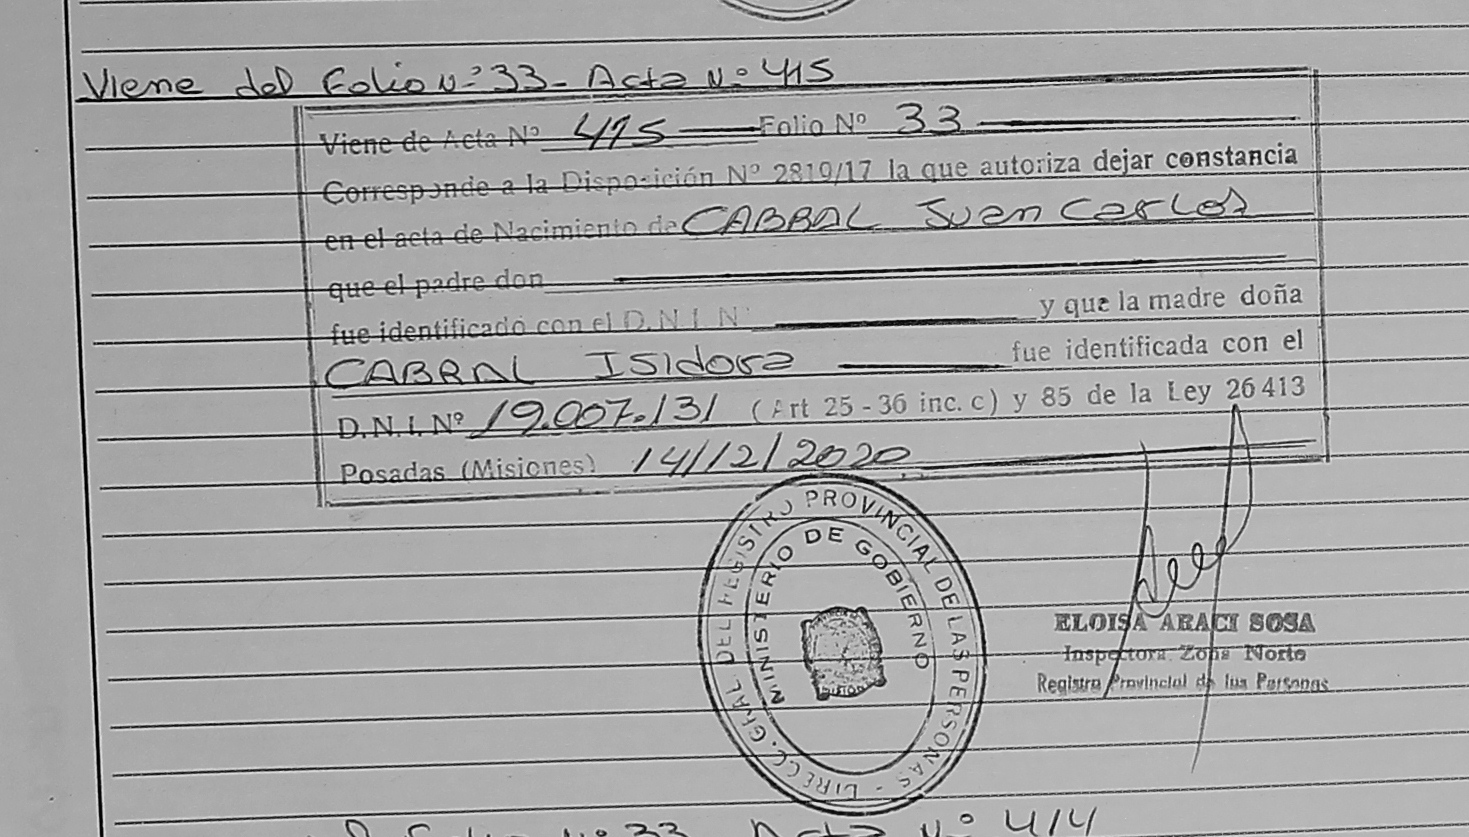 Viene del Folio N° 33 - Acta N° 415
Viene de Acta N° 415 Folio N° 33
Corresponde a la Disposición N° 2819/17 la que autoriza dejar constancia
en el acta de Nacimiento de CABRAL Juan Carlos
que el padre don
fue identificado con el D.N.I. N° y que la madre doña
CABRAL Isidora fue identificada con el
D.N.I. N° 19.007.131 (Art 25 - 36 inc. c) y 85 de la Ley 26413
Posadas (Misiones) 14/12/2020
DIRECC. GRAL. DEL REGISTRO PROVINCIAL DE LAS PERSONAS -
MINISTERIO DE GOBIERNO
ELOISA ARACI SOSA
Inspectora Zona Norte
Registro Provincial de las Personas
Folio N° 33 Acta N° 414